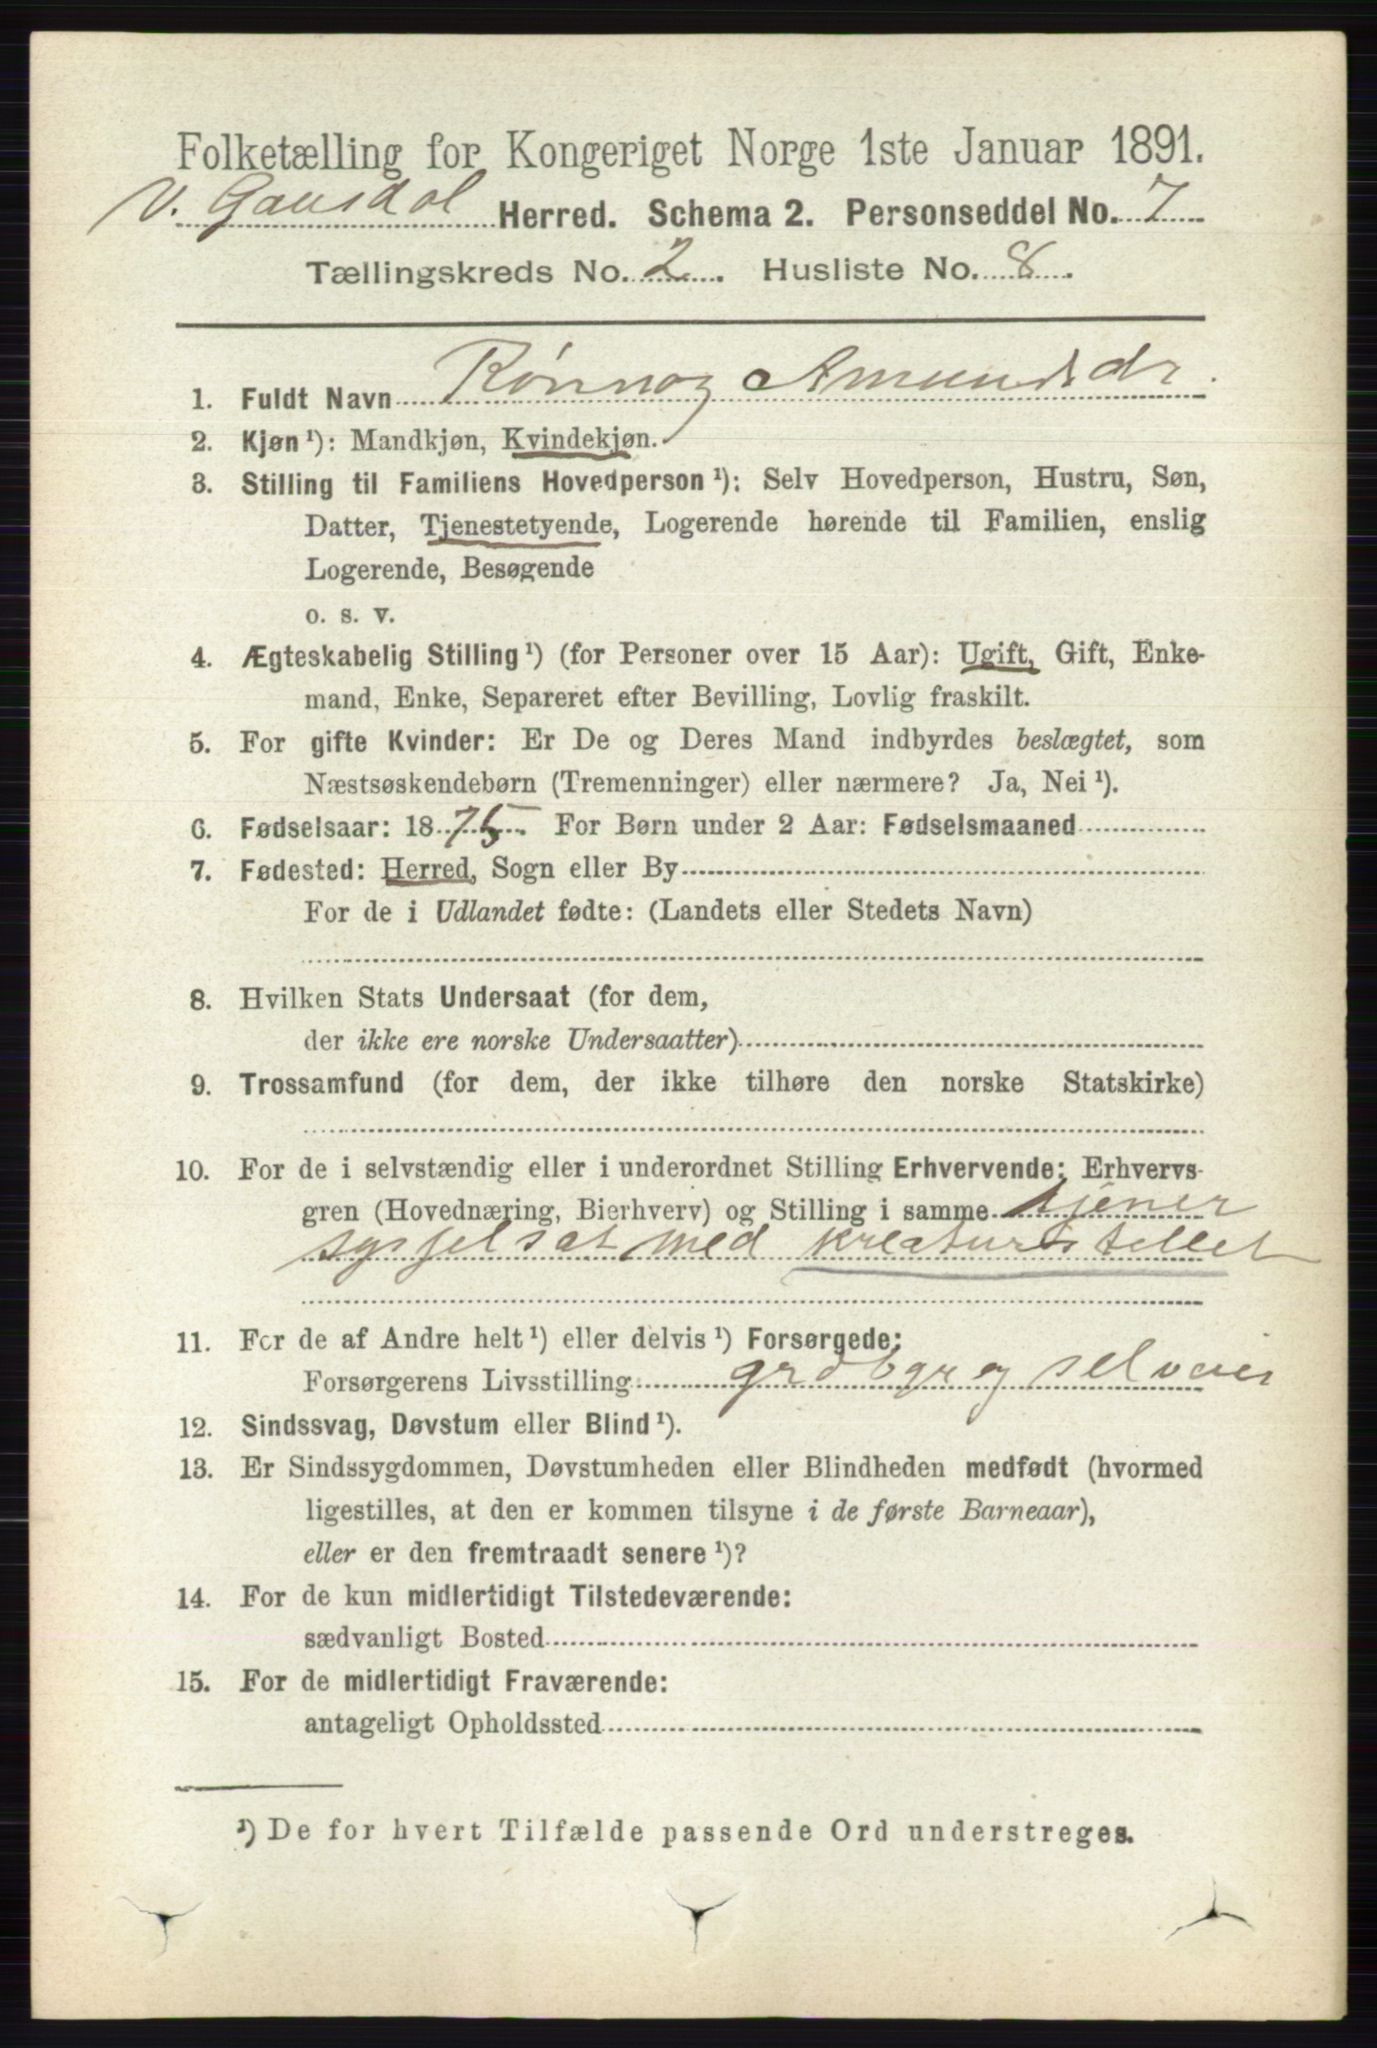 Folketælling for Kongeriget Norge 1ste Januar 1891.
V. Gausdal Herred. Schema 2. Personseddel No. 7
Tællingskreds No. 2. Husliste No. 8.
1. Fuldt Navn Rønnog Amundsdr.
2. Kjøn ¹): Mandkjøn, Kvindekjøn.
3. Stilling til Familiens Hovedperson ¹): Selv Hovedperson, Hustru, Søn,
Datter, Tjenestetyende, Logerende hørende til Familien, enslig
Logerende, Besøgende
o. s. v.
4. Ægteskabelig Stilling ¹) (for Personer over 15 Aar): Ugift, Gift, Enke-
mand, Enke, Separeret efter Bevilling, Lovlig fraskilt.
5. For gifte Kvinder: Er De og Deres Mand indbyrdes beslægtet, som
Næstsøskendebørn (Tremenninger) eller nærmere? Ja, Nei ¹).
6. Fødselsaar: 1875. For Børn under 2 Aar: Fødselsmaaned
7. Fødested: Herred, Sogn eller By
For de i Udlandet fødte: (Landets eller Stedets Navn)
8. Hvilken Stats Undersaat (for dem,
der ikke ere norske Undersaatter)
9. Trossamfund (for dem, der ikke tilhøre den norske Statskirke)
10. For de i selvstændig eller i underordnet Stilling Erhvervende: Erhvervs-
gren (Hovednæring, Bierhverv) og Stilling i samme tjener
sysselsat med kreaturstellet
11. For de af Andre helt ¹) eller delvis ¹) Forsørgede:
Forsørgerens Livsstilling grdbgr og selveier
12. Sindssvag, Døvstum eller Blind ¹).
13. Er Sindssygdommen, Døvstumheden eller Blindheden medfødt (hvormed
ligestilles, at den er kommen tilsyne i de første Barneaar),
eller er den fremtraadt senere ¹)?
14. For de kun midlertidigt Tilstedeværende:
sædvanligt Bosted
15. For de midlertidigt Fraværende:
antageligt Opholdssted
¹) De for hvert Tilfælde passende Ord understreges.